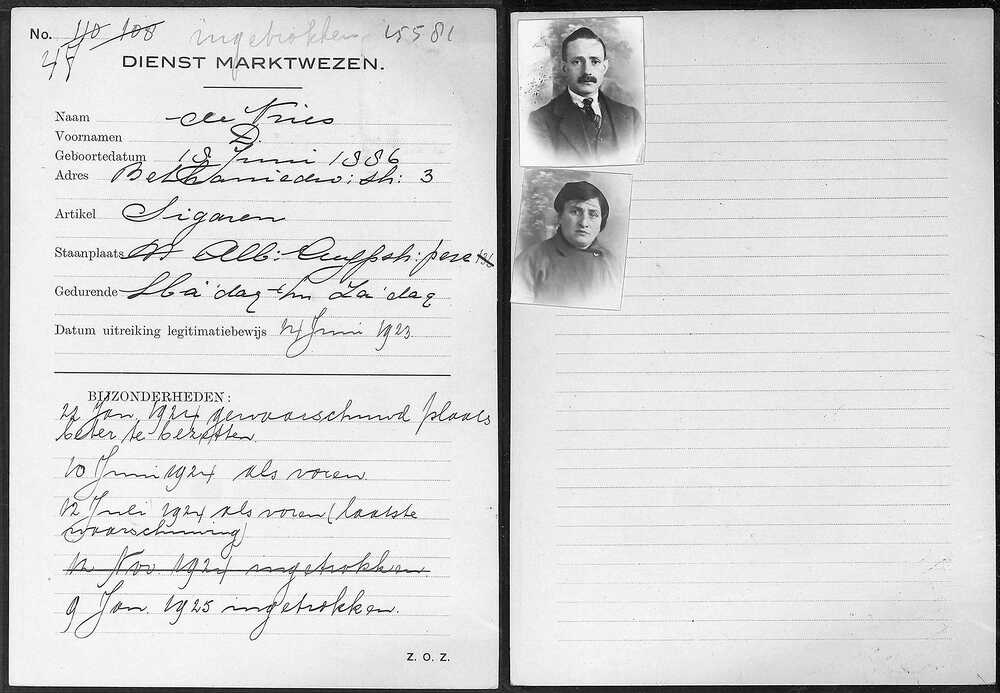 No. 110 108 ingetrokken 15581
45
DIENST MARKTWEZEN.
Naam de Vries
Voornamen D.
Geboortedatum 18 Juni 1886
Adres Bethaniedw: str: 3
Artikel Sigaren
Staanplaats Alb: Cuypstr: perc
Gedurende Ma'dag t/m Za'dag
Datum uitreiking legitimatiebewijs 14 Juni 1923
BIJZONDERHEDEN:
22 Jan. 1924 gewaarschuwd plaats
beter te bezetten.
10 Juni 1924 als voren.
12 Juli 1924 als voren (laatste
waarschuwing)
12 Nov. 1924 ingetrokken.
9 Jan. 1925 ingetrokken.
Z. O. Z.